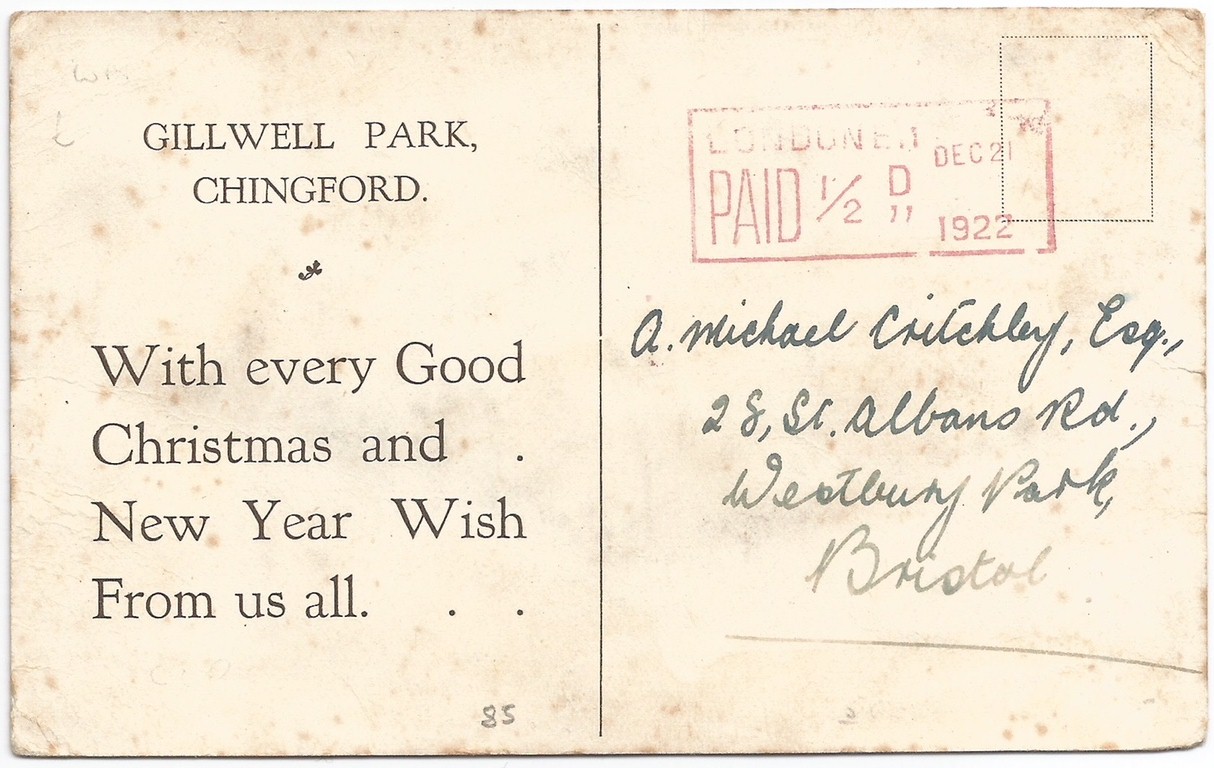 GILLWELL PARK,
CHINGFORD.
With every Good
Christmas and .
New Year Wish
From us all. . .
85
LONDON E.1
DEC 21
PAID 1/2 D
1922
A. Michael Critchley, Esq.,
28, St. Albans Rd.,
Westbury Park,
Bristol